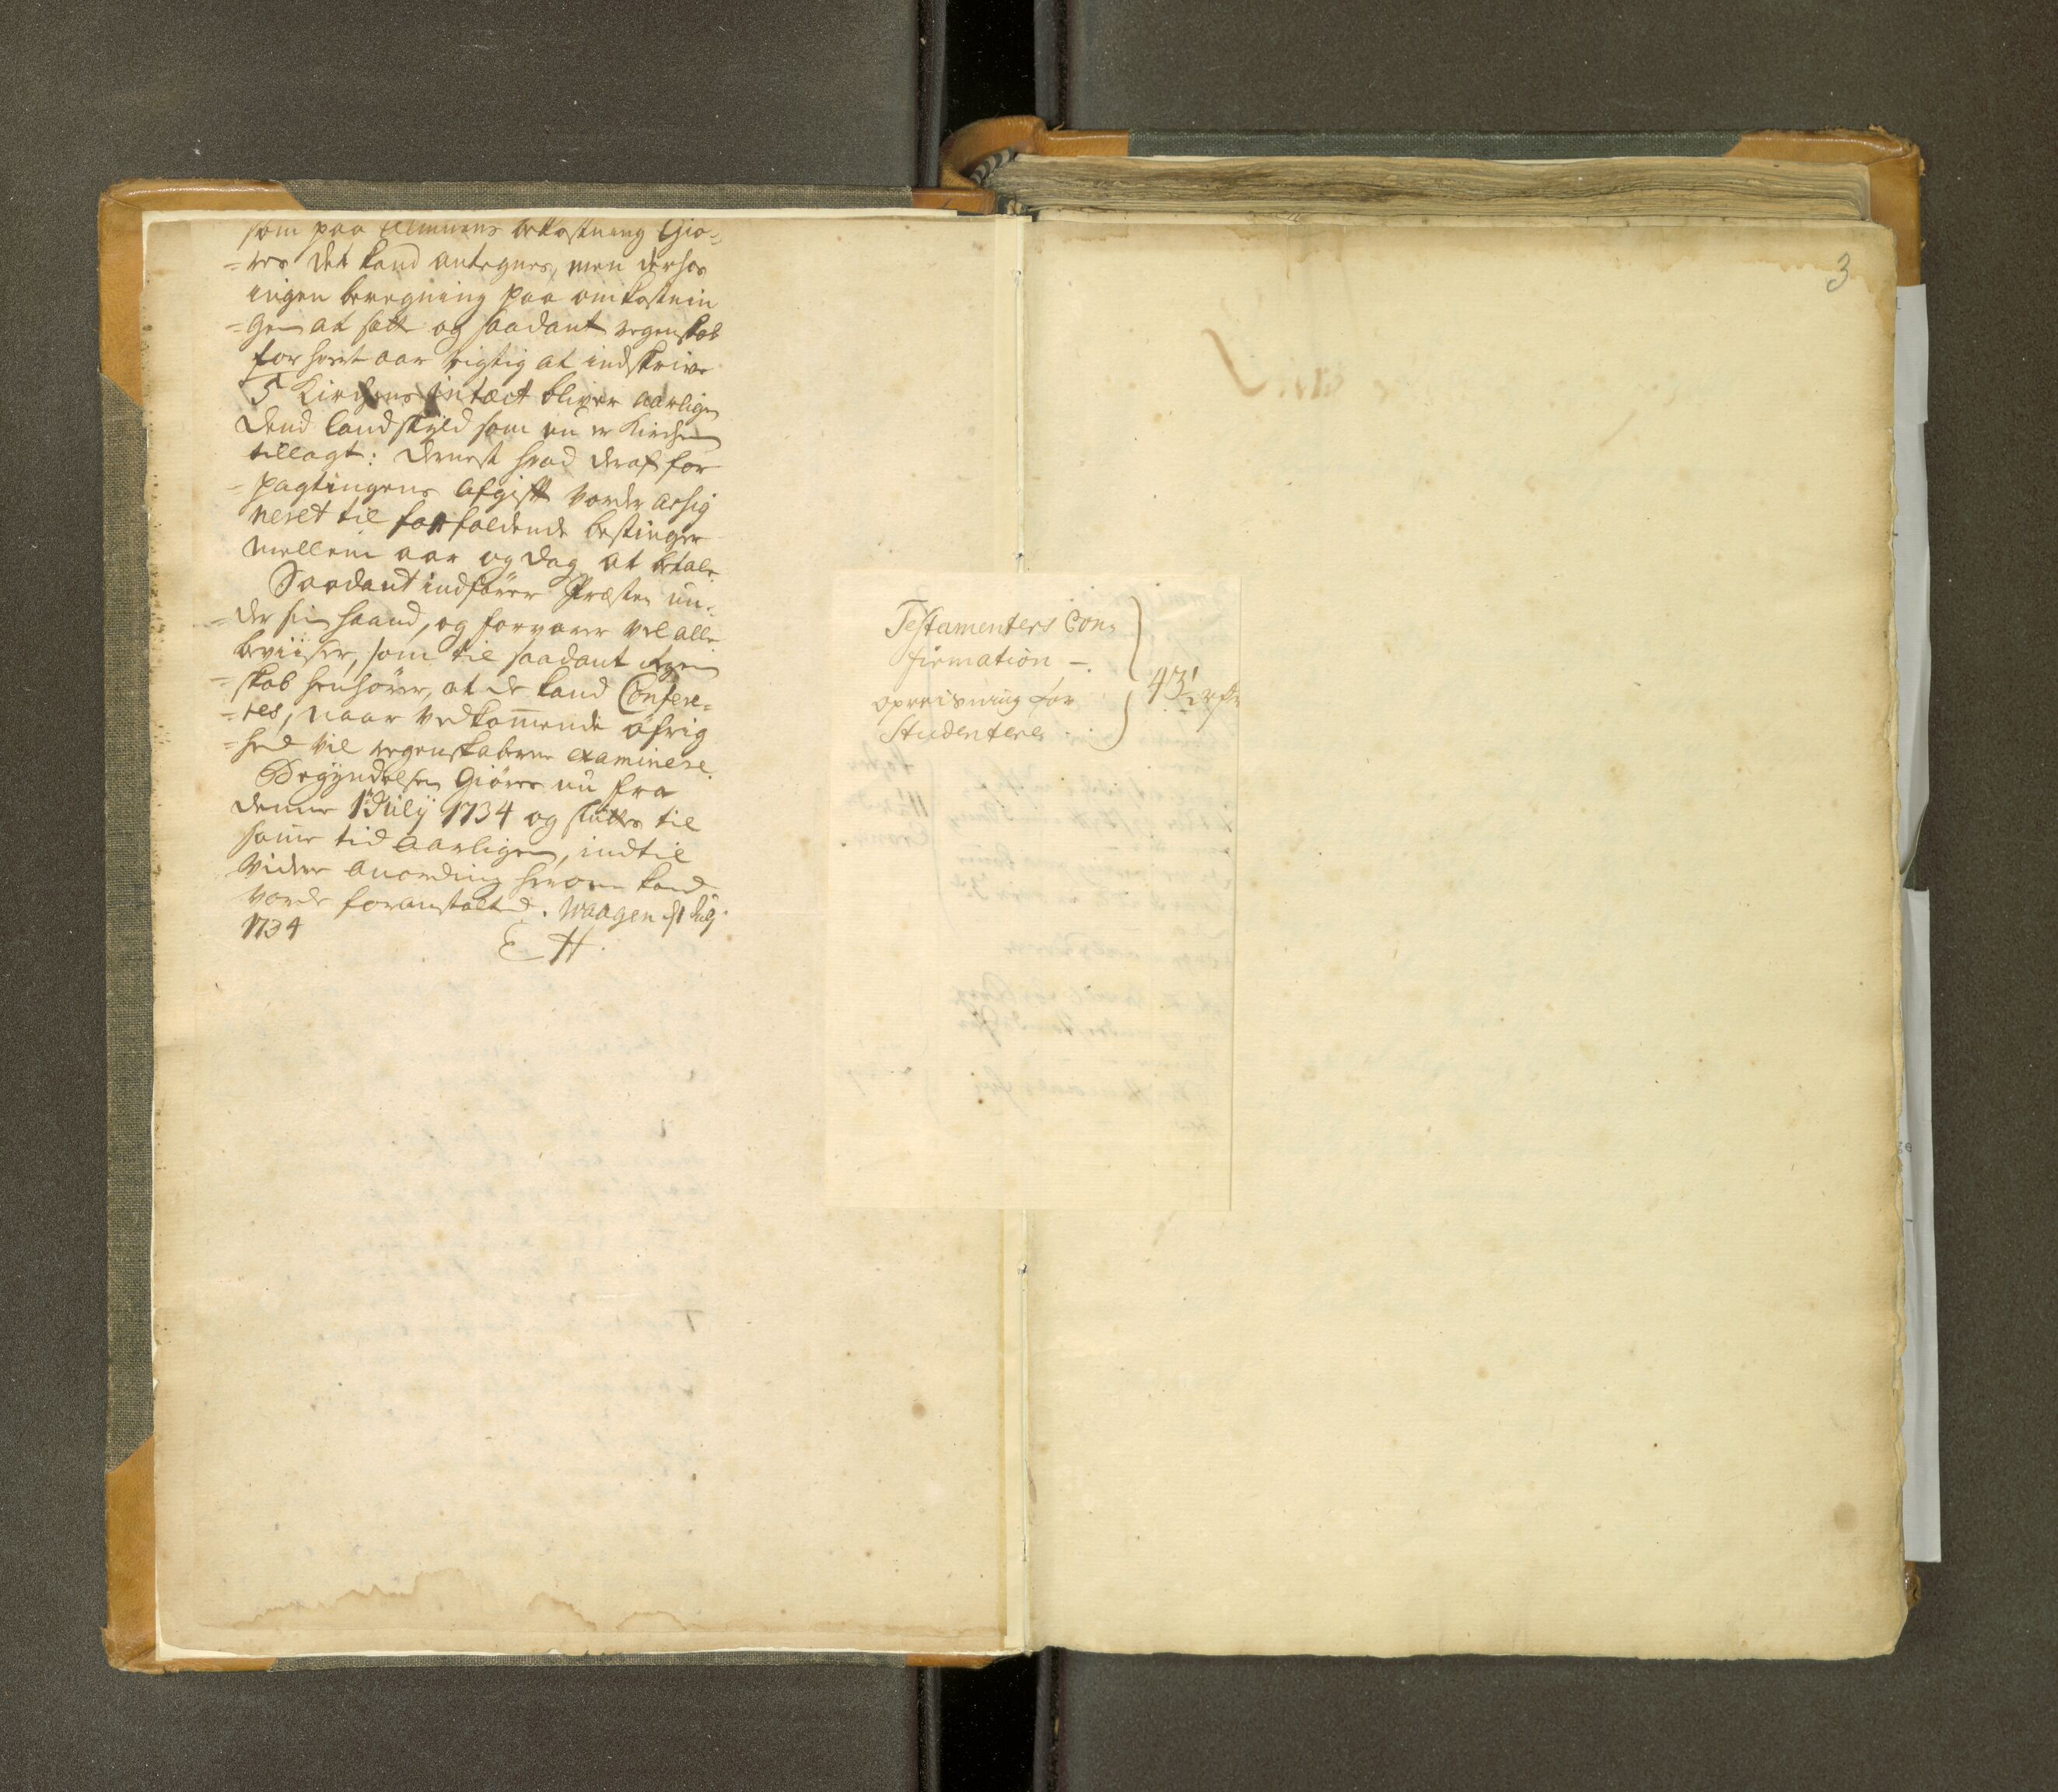 som paa Almuens bekostning Giø-
=res det kand antegnes, men derhos
ingen beregning paa omkostnin
=gen at sætt og saadant regenskab
for hvert aar rigtig at indskrive
5 Kirchens intæct bliver aarligen
dend landskyld som nu er Kirchen
tillagt: dernest hvad deraf for
=pagtingens Afgift vorder assig
neret til forfaldende
mellem aar og dag at betale.
Saadant indfører Præsten un-
=der sin haand, og forvarer vel alle
beviiser, som til saadant regen
=skab henhører, at de kand Confere-
=res, naar vedkom̅ende øfrig
=hed vil regenskaberne examinere.
Begyndelsen Giøres nu fra
denne 1 July 1734 og sluttes til
som̅e tid aarligen, indtil
videre anordning herom kand
vorde foranstalted. Waagen
1734
E H.
Testamenters Con-
firmation -.
opreisning for
Studentere .
43
3